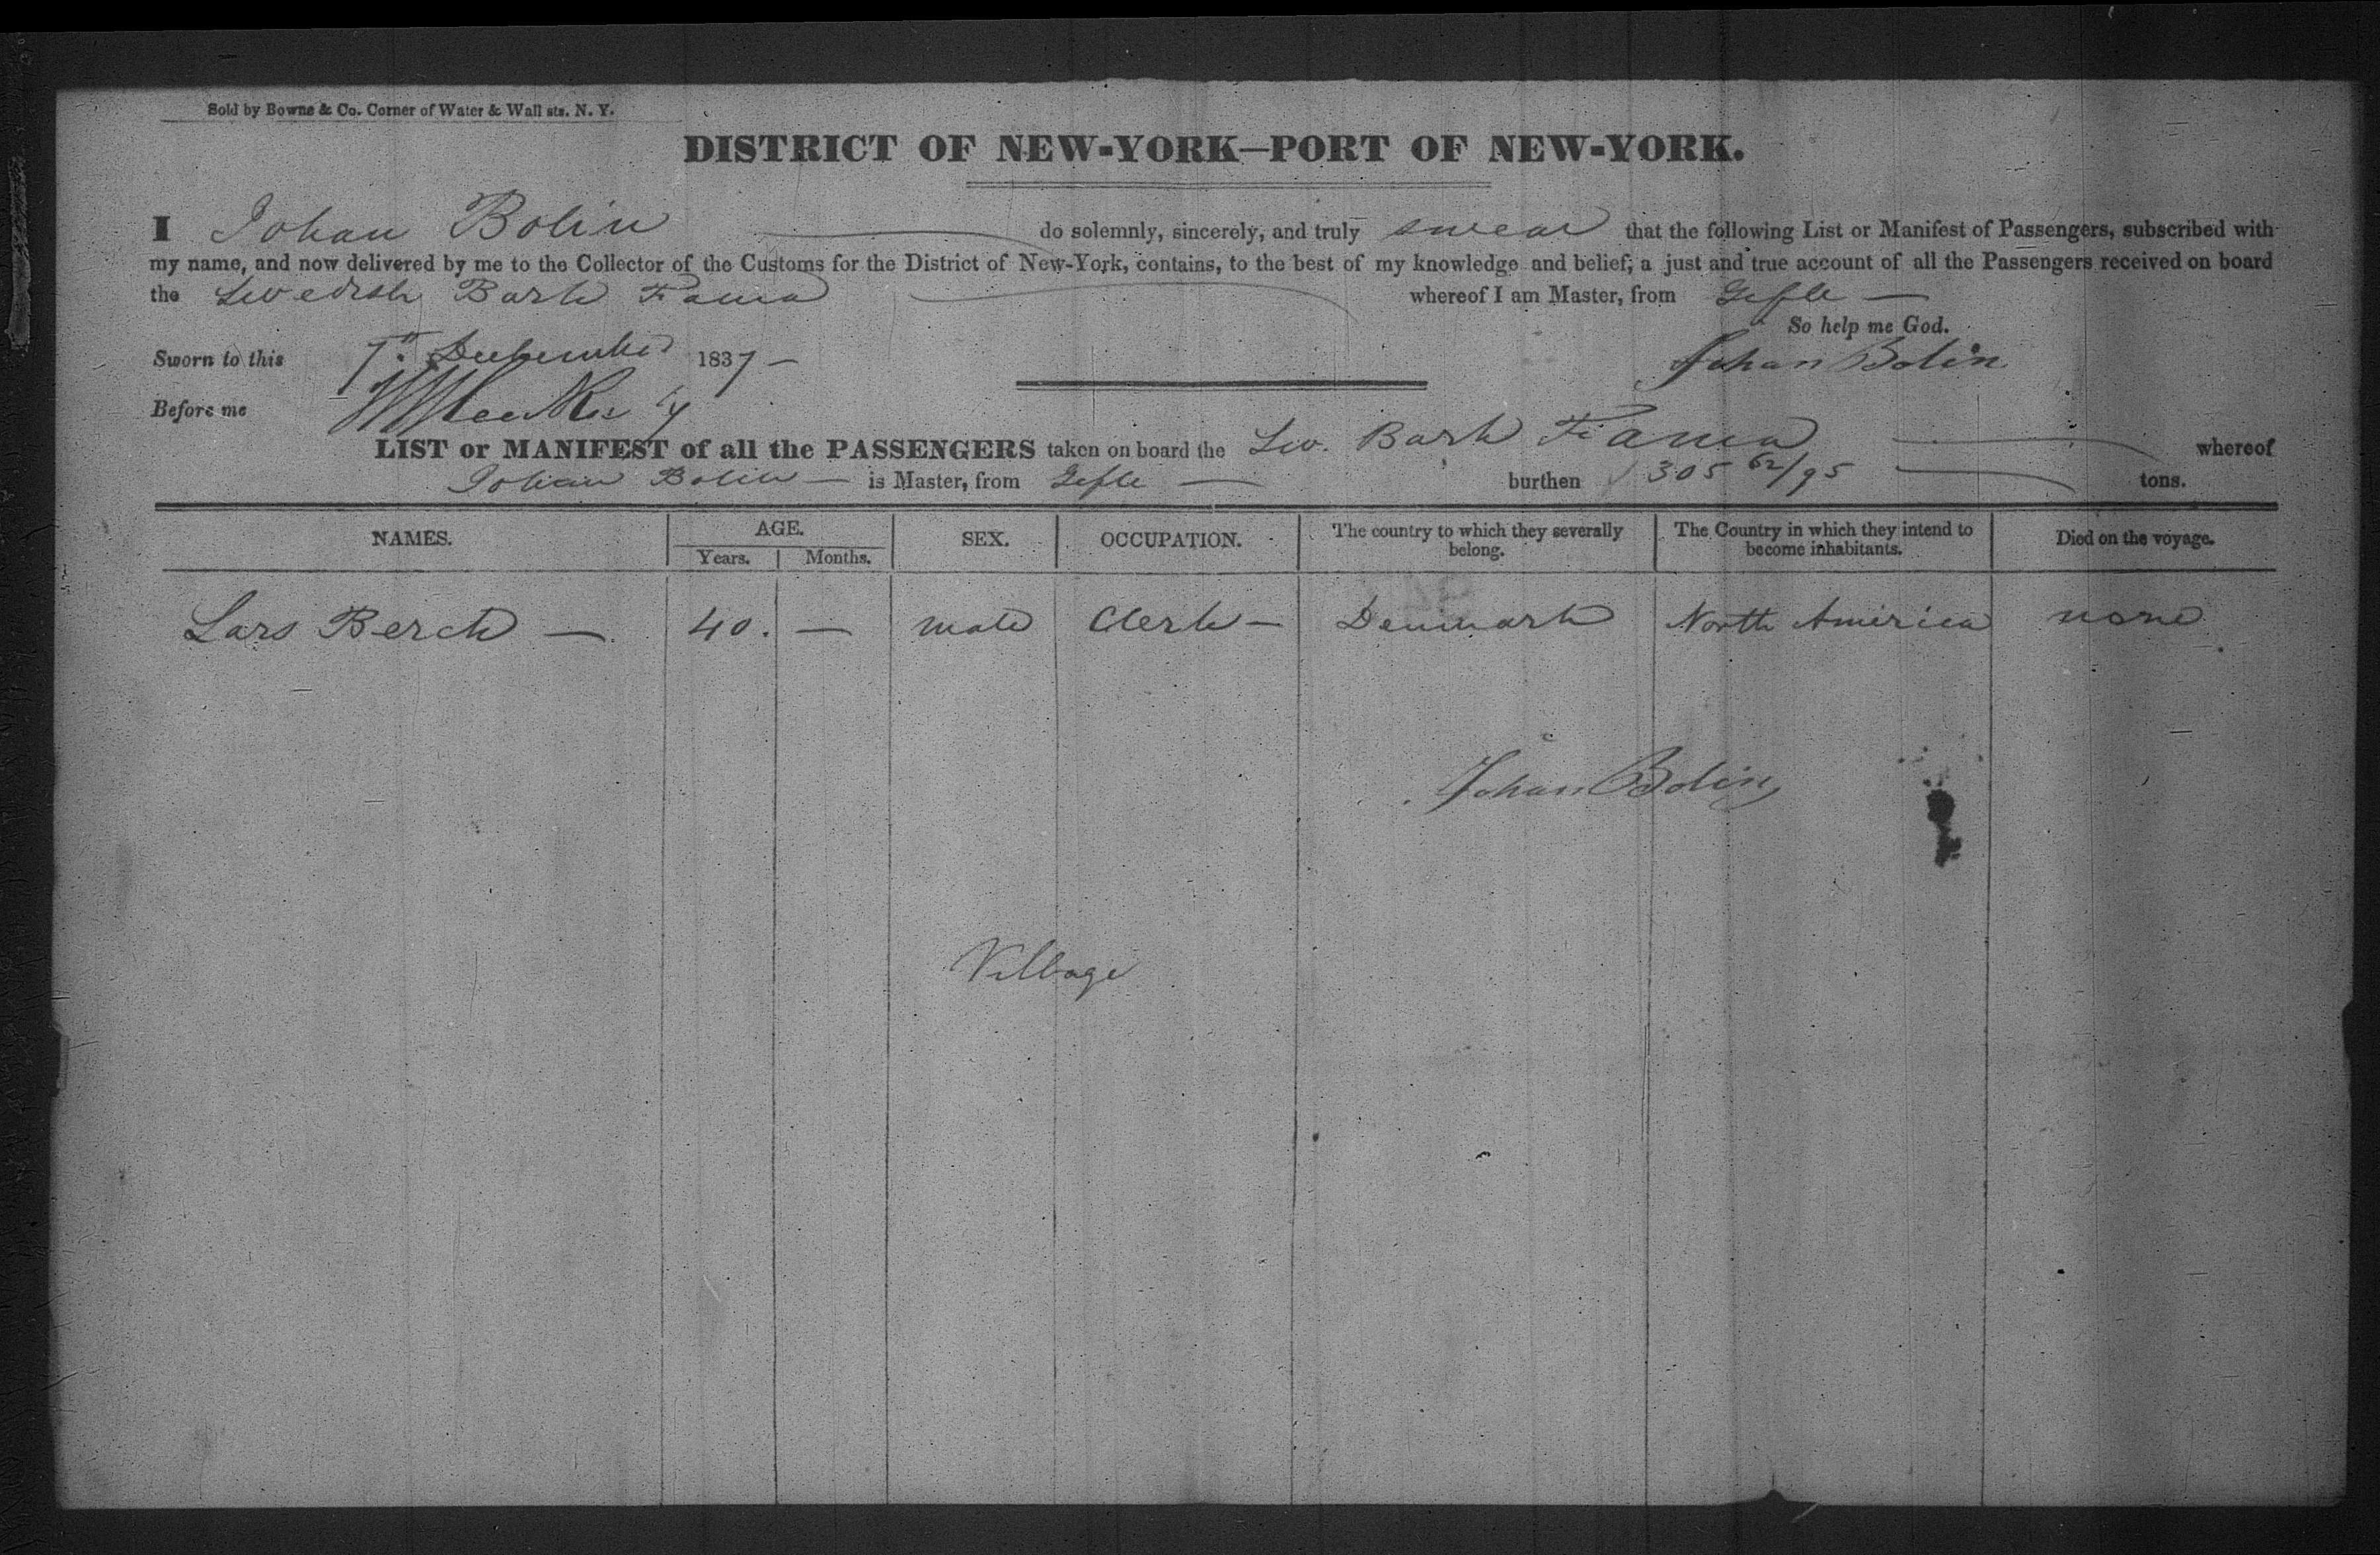 Sold by Bowne & Co. Corner of Water & Wall sts. N. Y.
DISTRICT OF NEW-YORK—PORT OF NEW-YORK.
I Johan Bolin do solemnly, sincerely, and truly swear that the following List or Manifest of Passengers, subscribed with
my name, and now delivered by me to the Collector of the Customs for the District of New-York, contains, to the best of my knowledge and belief, a just and true account of all the Passengers received on board
the Swedish Bark Fama whereof I am Master, from Gefle —
So help me God.
Sworn to this 7th December 1837 — Johan Bolin
Before me
LIST or MANIFEST of all the PASSENGERS taken on board the Sw. Bark Fama whereof
Johan Bolin — is Master, from Gefle — burthen 305 62/95 tons.
NAMES. AGE. SEX. OCCUPATION. The country to which they severally belong. The Country in which they intend to become inhabitants. Died on the voyage.
Years. Months.
Lars Berch — 40. — male Clerk — Denmark North America none
Johan Bolin
Village